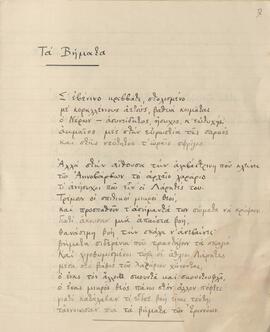 Τὰ Βήματα
Σ' ἐβένινο κρεββάτι, στολισμένο
μὲ κοραλλένιους ἀετούς, βαθυὰ κοιμᾶται
ὁ Νέρων — ἀσυνείδητος, ἥσυχος, κ' εὐτυχής·
ἀκμαῖος μὲς στὴν εὐρωστία τῆς σαρκὸς
καὶ στῆς νεότητος τ' ὡραῖο σφρῖγος.
Ἀλλὰ στὴν αἴθουσα τὴν ἀλαβάστρινη ποὺ κλείνει
τῶν Ἀηνοβάρβων τὸ ἀρχαῖο λαράριο
τί ἀνήσυχοι ποὺ εἶν' οἱ Λάρητές του.
Τρέμουν οἱ σπιτικοὶ μικροὶ θεοί,
καὶ προσπαθοῦν τ' ἀσήμαντά των σώματα νὰ κρύψουν.
Γιατὶ ἄκουσαν μιὰ ἀπαίσια βοή,
θανάσιμη βοὴ τὴν σκάλα ν' ἀνεβαίνει·
βήματα σιδερένια ποὺ τραντάζουν τὰ σκαλιά.
Καὶ λιγοθυμισμένοι τώρα οἱ ἄθλιοι Λάρητες
μέσα στὸ βάθος τοῦ λαράριου χώνονται,
ὁ ἕνας τὸν ἄλλονα σκουντᾶ καὶ σκουντουφλᾶ,
ὁ ἕνας μικρὸς θεὸς πάνω στὸν ἄλλον πέφτει
γιατὶ κατάλαβαν τί εἶδος βοὴ εἶναι τούτη,
τἄνοιωσαν πιὰ τὰ βήματα τῶν Ἐριννύων.